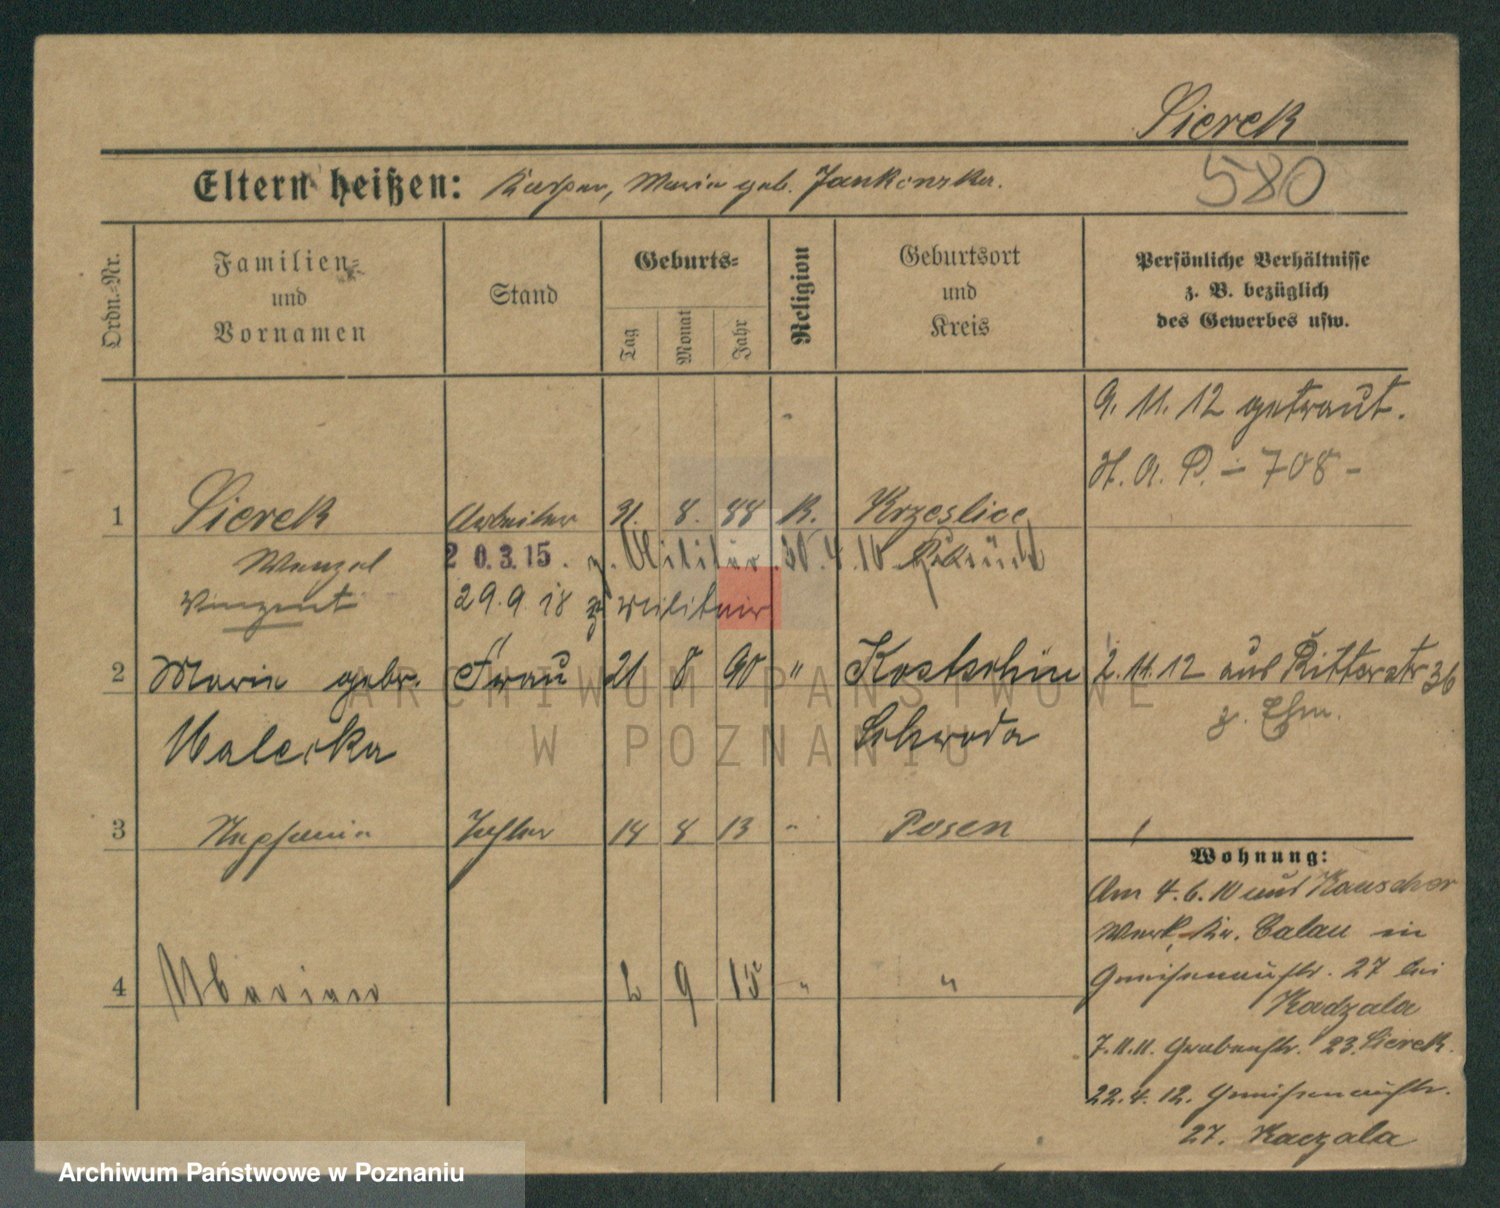 Sierek
580
Eltern heißen: Kasper, Marie geb. Jankowska.
Ordn.-Nr.
Familien-
und
Vornamen
Stand
Geburts-
Tag
Monat
Jahr
Religion
Geburtsort
und
Kreis
Persönliche Verhältnisse
z. B. bezüglich
des Gewerbes usw.
9. 11. 12 getraut.
H. A. P. - 708 -
1 Sierek Arbeiter 31. 8. 88 K. Krzeslice
Wenzel 20.3.15. z. Militär. 30.4.16 zurück
Vinzent 29.9.18 z Militair
2 Marie gebr. Frau 21 8 90 " Kostschin 2.11.12 aus Ritterstr 36
z. Ehm.
Walecka Schroda
3 Stephania Tochter 14 8 13 " Posen
Wohnung:
Am 4.6.10 aus Kauscher
Werk, Kr. Calau in
Gneisenaustr. 27 bei
Kadzala
4 Marian 2 9 15 " "
7.11.11. Grabenstr. 23. Sierek.
22.4.12. Gneisenaustr.
27. Kaczala
ARCHIWUM PAŃSTWOWE
W POZNANIU
Archiwum Państwowe w Poznaniu